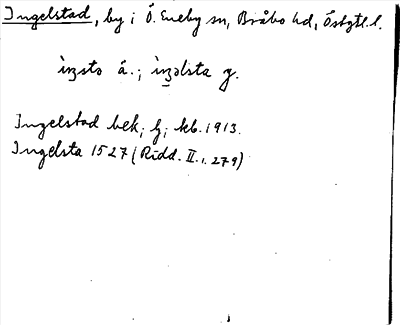 Ingelstad, by i Ö. Eneby sn, Bråbo hd, Östgtl. l.
ìŋsta ä.; ìŋəlsta y.
Ingelstad bek; fj; kb. 1913.
Ingelsta 1527 (Ridd. II. 1. 279)